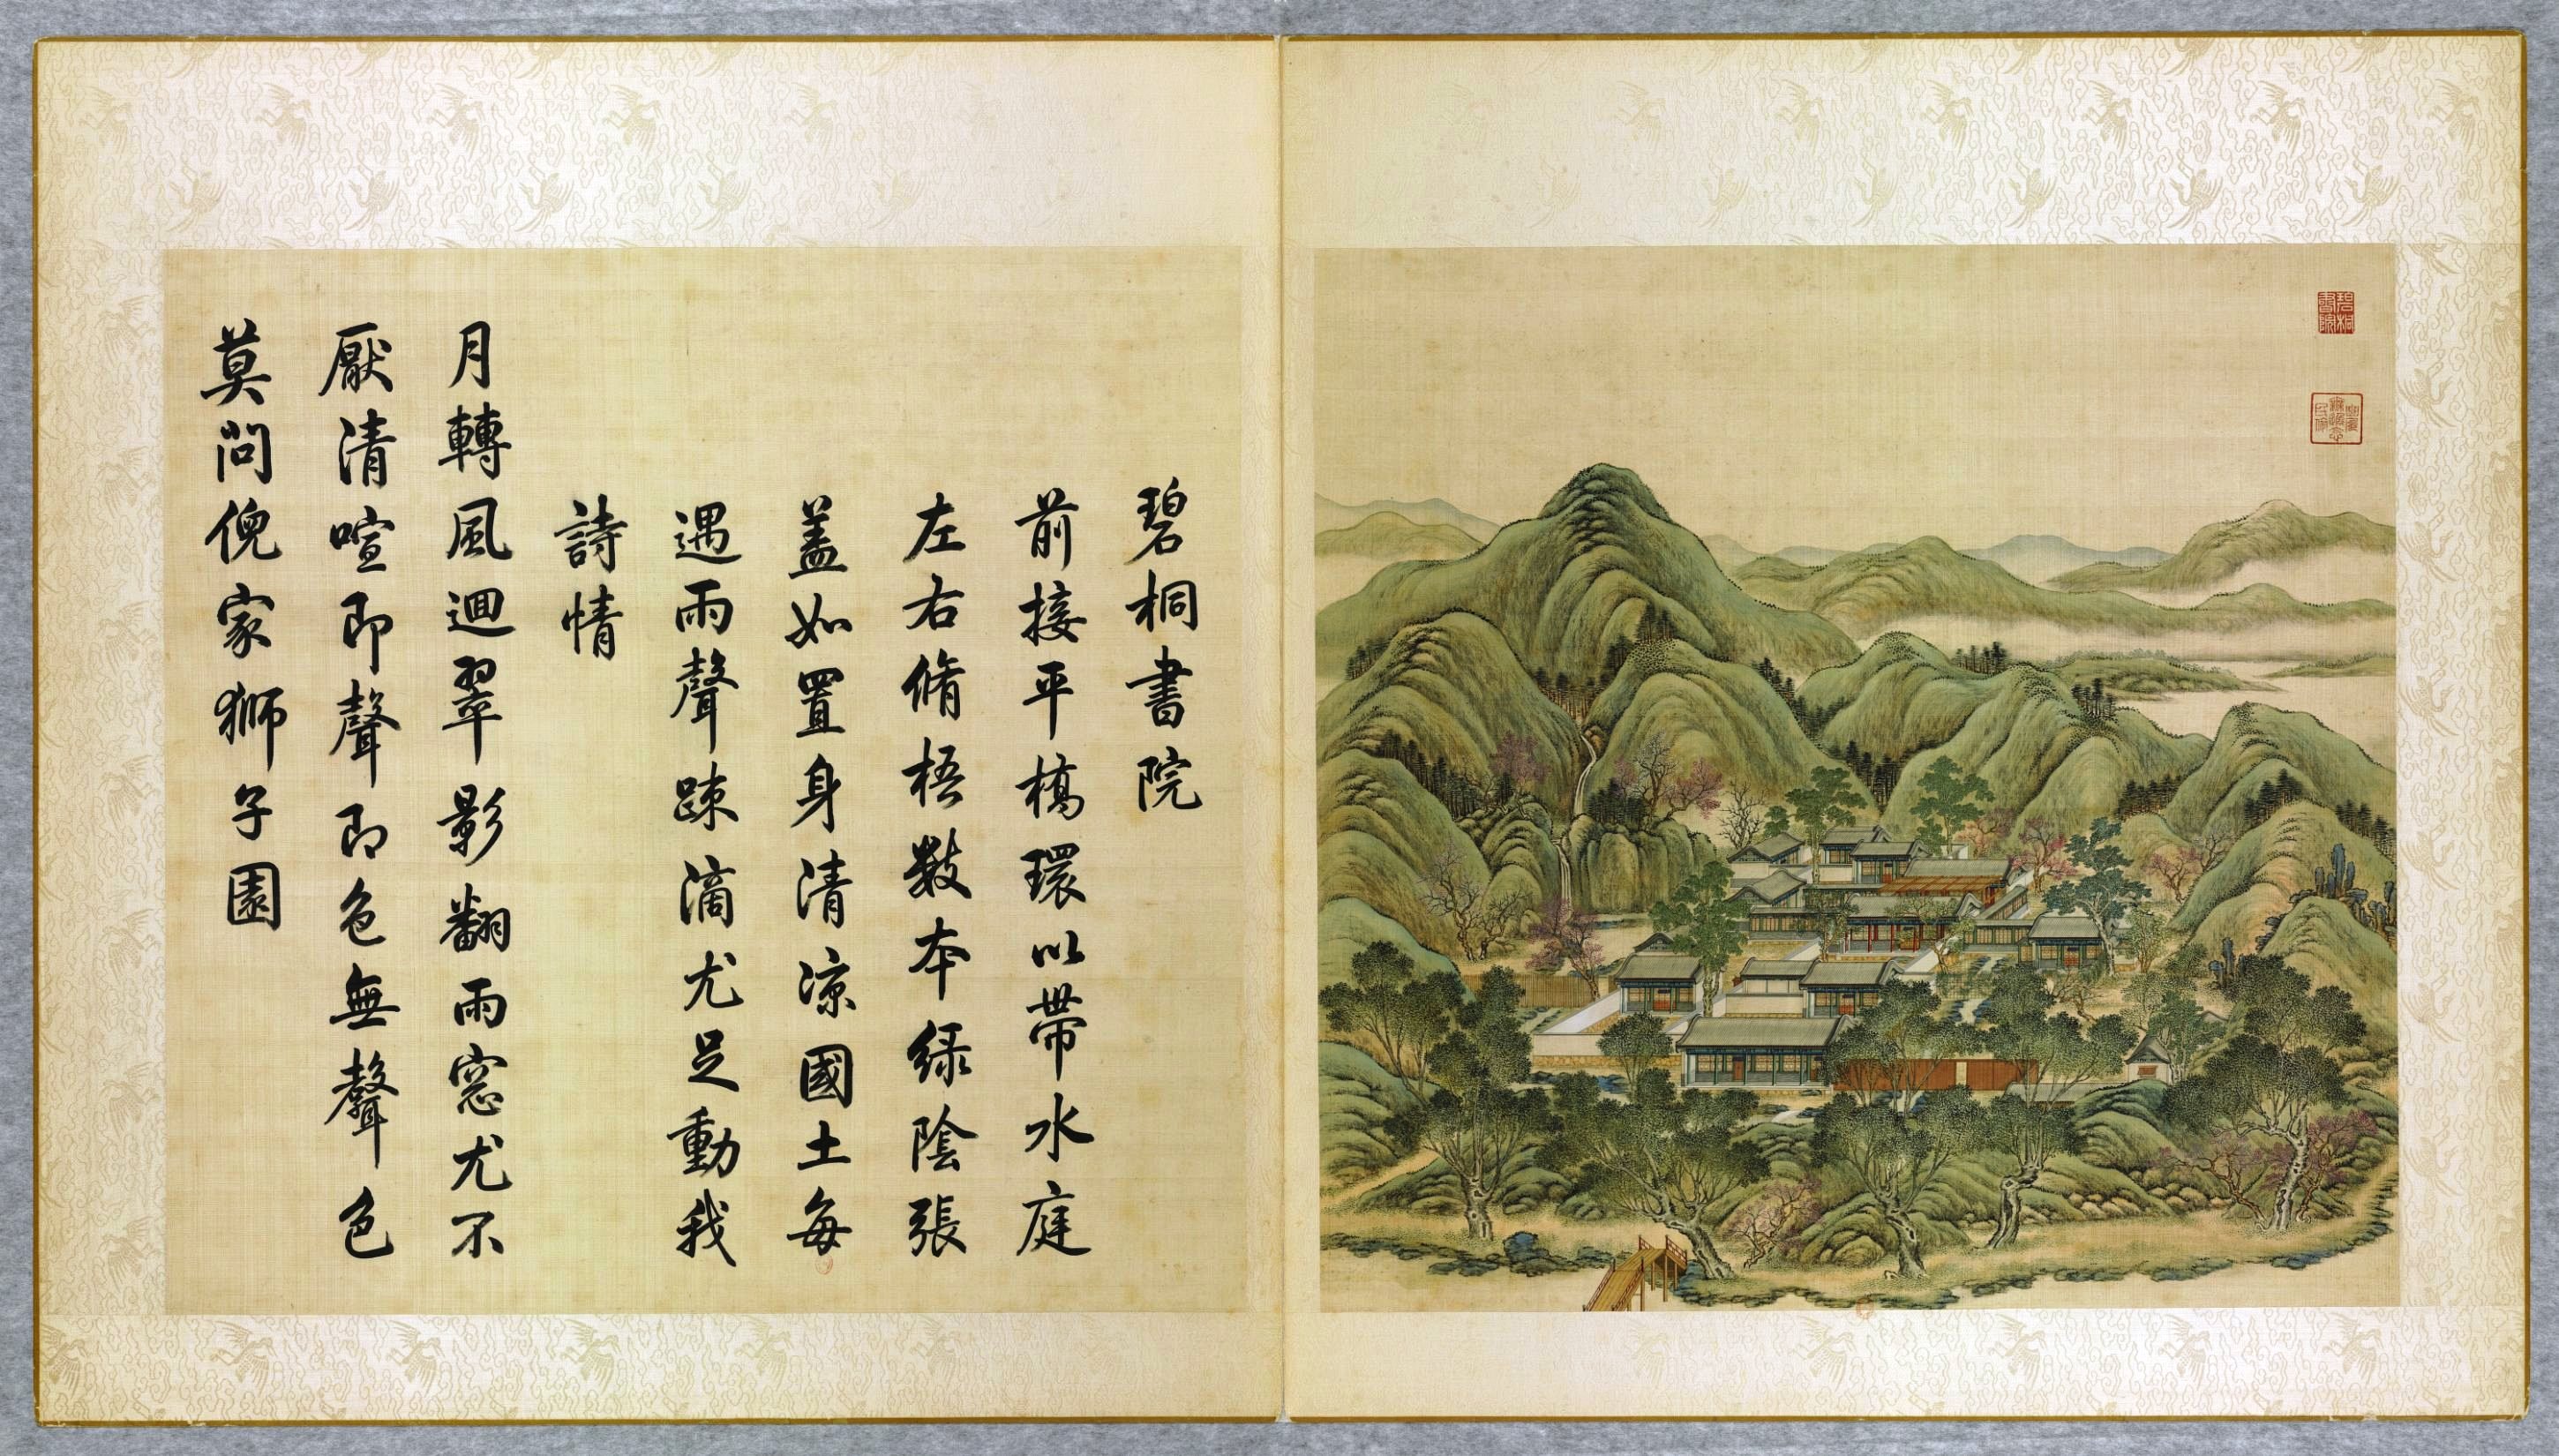 碧桐書院
前接平橋環以帶水庭
左右脩梧數本綠陰張
蓋如置身清涼國土每
遇雨聲踈滴尤足動我
詩情
月轉風迴翠影翻雨窓尤不
厭清喧即聲即色無聲色
莫問倪家獅子園
碧桐書院